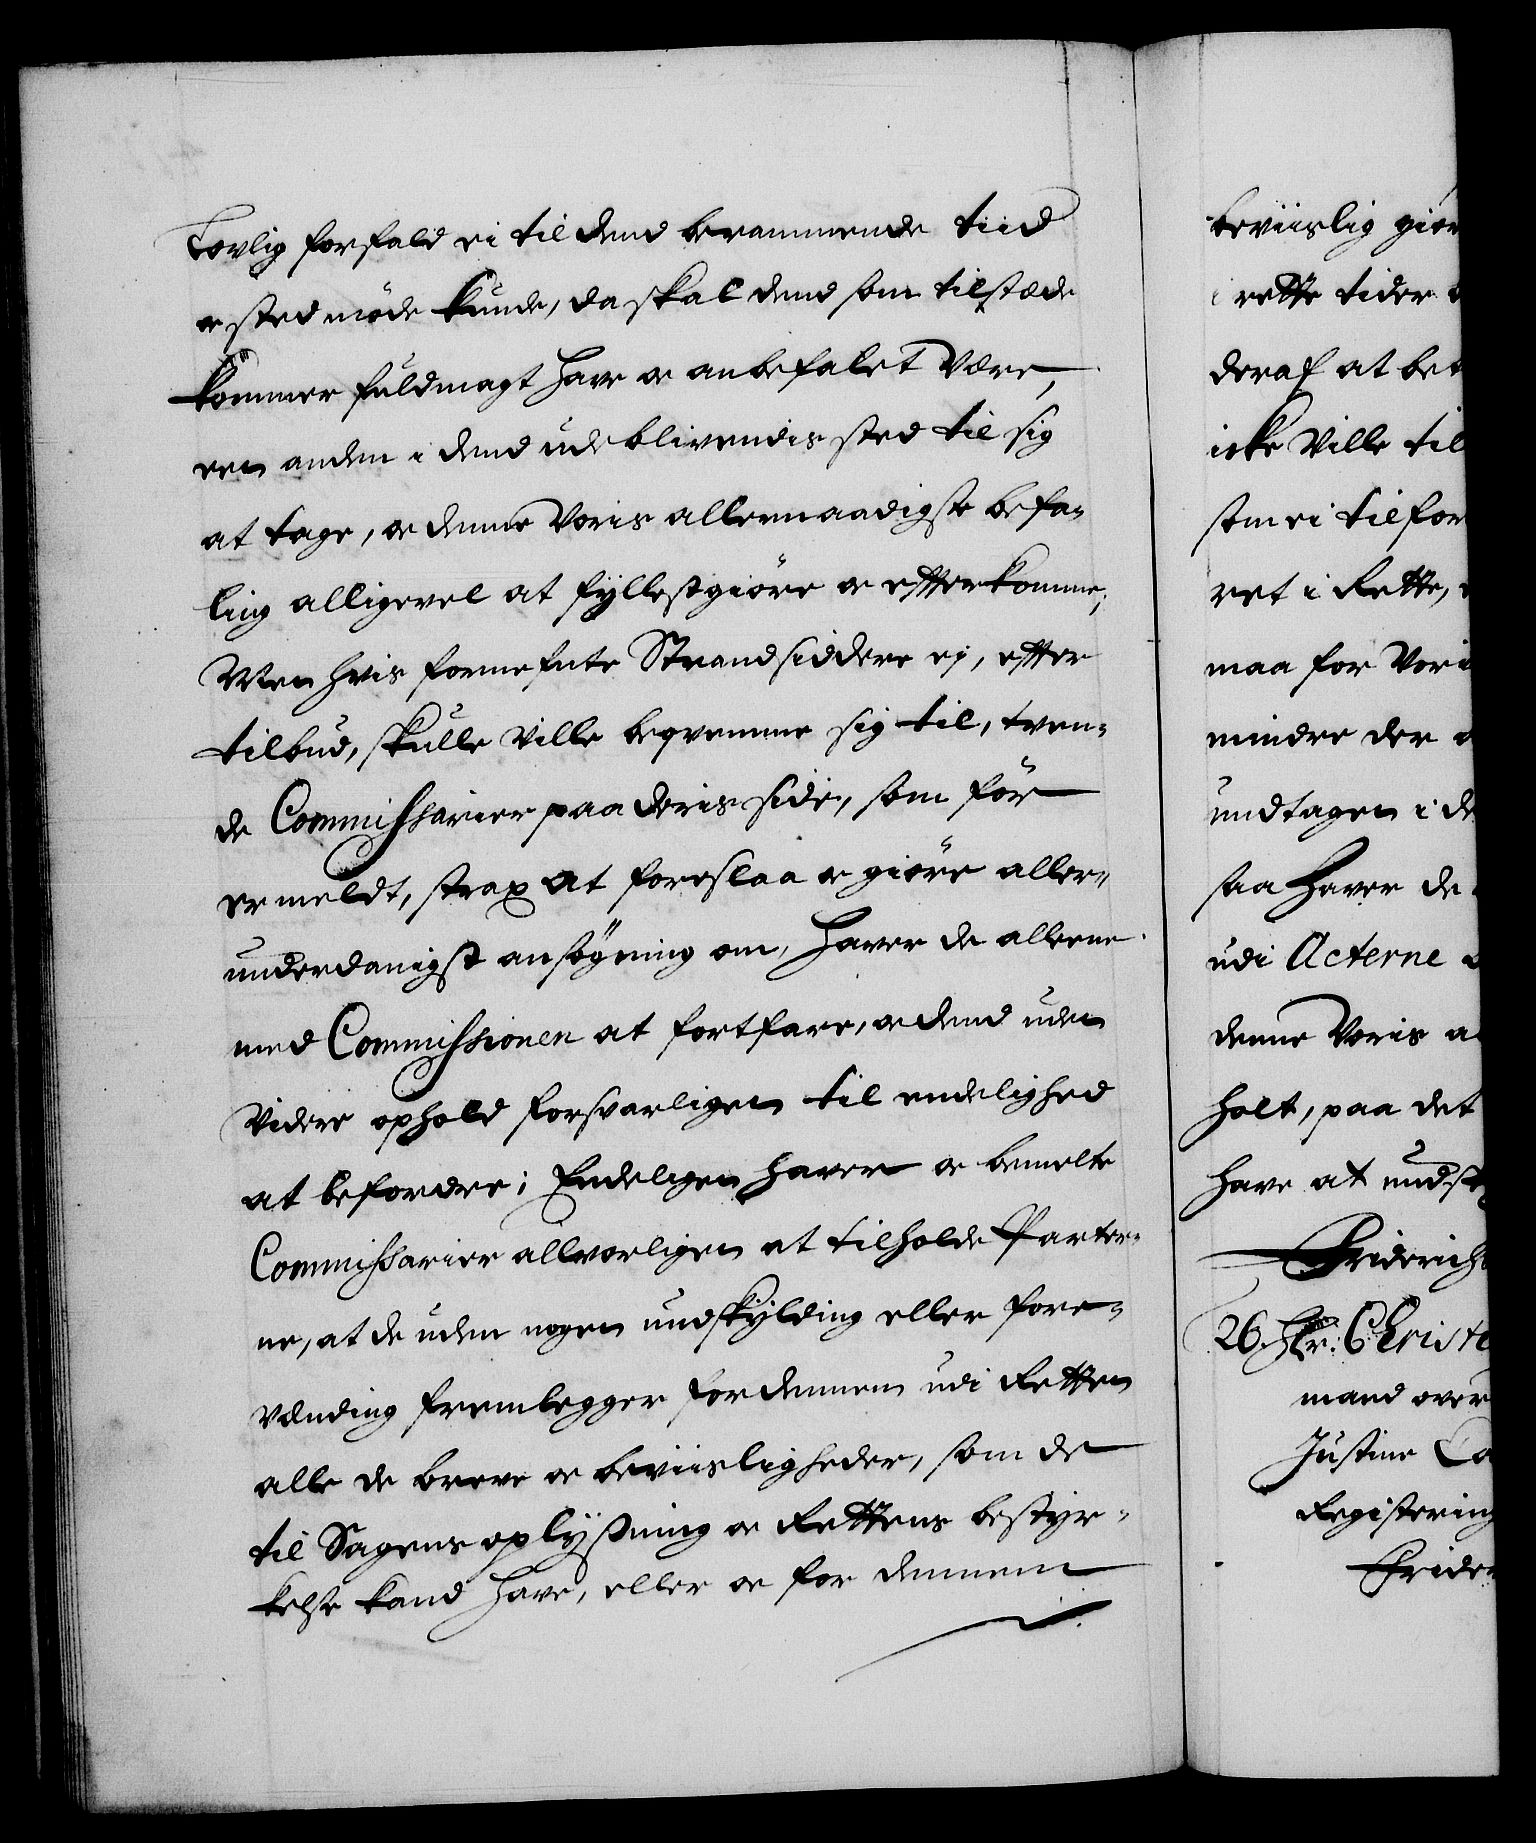 Lovlig forfald ei til dend berammende tiid
oc sted møde kunde, da skal dend som tilstæde
kommer fuldmagt have oc anbefalet være,
een anden i dend udeblivendis sted til sig
at tage, oc denne Voris allernaadigste befa-
ling alligevel at fyllestgiøre oc efterkomme;
Men hvis formeente Strandsiddere ej, efter
tilbud, skulle ville beqvemme sig til, tven-
de Commissarier paa deris side, som før
er meldt, strax at foreslaa oc giøre aller-
underdanigst ansøgning om, haver de alleene
med Commissionen at fortfare, oc dend uden
Videre ophold forsvarligen til endelighed
at befordre; Endeligen haver oc bemelte
Commissarier allvorligen at tilholde Parter-
ne, at de uden nogen undskylding eller fore-
vending fremlegger for dennem udi Retten
alle de breve oc beviisligheder, som de
til Sagens oplysning oc Rettens bestyr-
kelse kand have, eller oc for dennem
beviislig giør
i rette tider
deraf at bet
icke Ville til
som ei tilfor
ret i Rette,
maa for Vori
mindre der
undtagen i de
saa haver de
udi Acterne
denne Voris a
holt, paa det
have at unds
Friderichs
26. Hr: Christe
mand over
Justine Ca
Registering
Frider